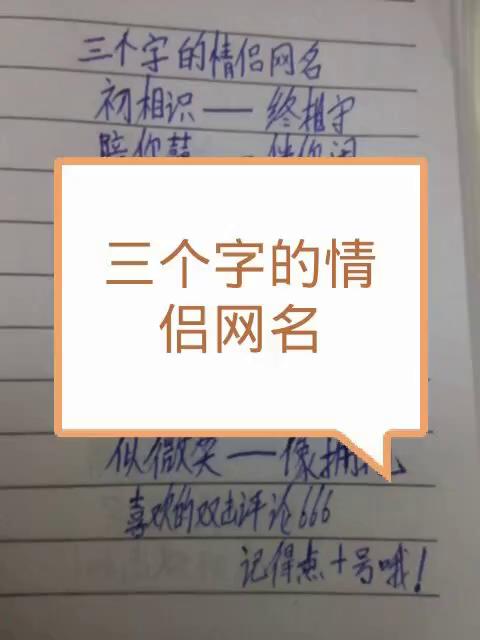 三个字的情侣网名
初相识——终相守
陪你
三个字的情
侣网名
似微笑——像拥
喜欢的双击评论666
记得点+号哦!